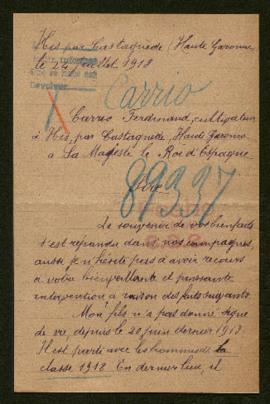 His par Castagnède (Haute Garonne
le 24 juillet 1918
Devolver
Carrio
Carrio Ferdinand, cultivateur
à His, par Castagnette, Haute Garonne
à Sa Majesté le Roi d'Espagne
89337
Sire
Le souvenir de vos bienfaits
s'est répandu dans nos campagnes
aussi je n'hésite pas à avoir recours
à votre bienveillante et puissante
intervention à raison des faits suivants.
Mon fils n'a pas donné signe
de vie, depuis le 20 juin dernier 1918.
Il est parti avec les hommes de la
classe 1918. En dernier lieu, il